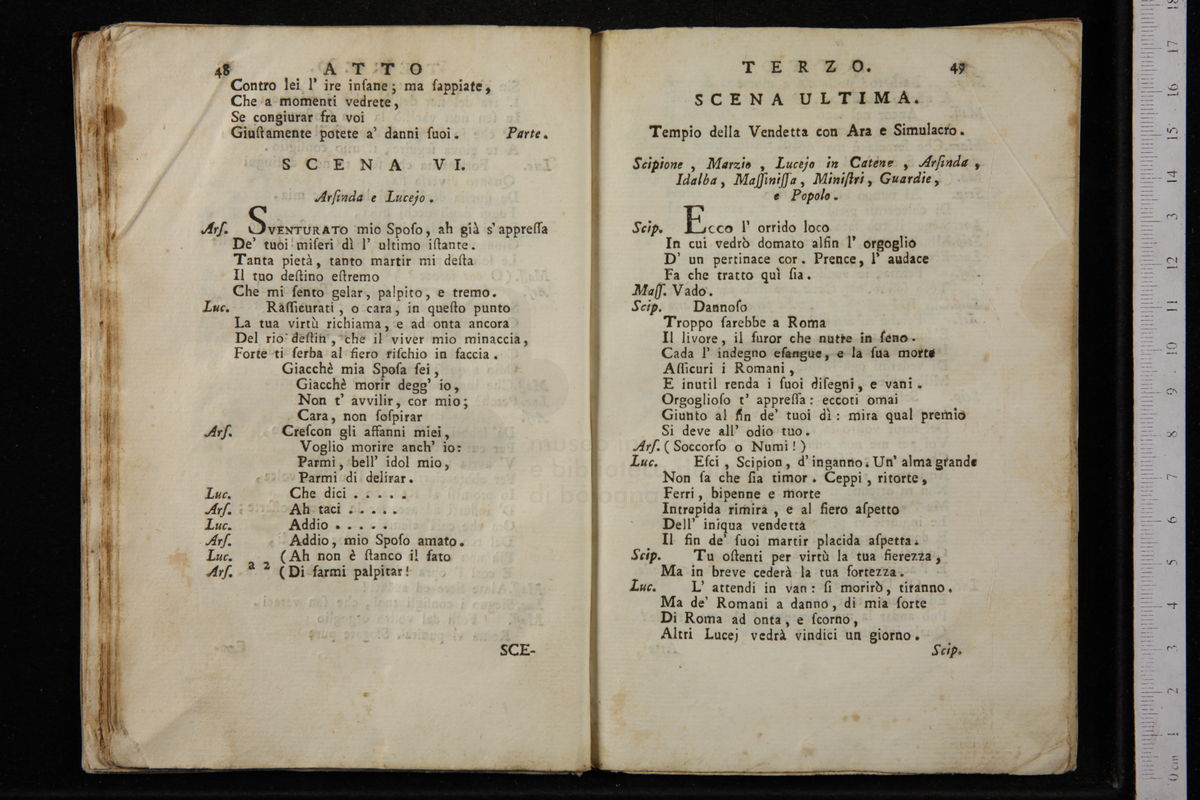 48 ATTO
Contro lei l' ire inſane; ma ſappiate,
Che a momenti vedrete,
Se congiurar fra voi
Giuſtamente potete a' danni ſuoi. Parte.
SCENA VI.
Arſinda e Lucejo.
Arſ. SVENTURATO mio Spoſo, ah già s' appreſſa
De' tuoi miſeri dì l' ultimo iſtante.
Tanta pietà, tanto martir mi deſta
Il tuo deſtino eſtremo
Che mi ſento gelar, palpito, e tremo.
Luc. Raſſicurati, o cara, in queſto punto
La tua virtù richiama, e ad onta ancora
Del rio deſtin, che il viver mio minaccia,
Forte ti ſerba al fiero riſchio in faccia.
Giacchè mia Spoſa ſei,
Giacchè morir degg' io,
Non t' avvilir, cor mio;
Cara, non ſoſpirar
Arſ. Creſcon gli affanni miei,
Voglio morire anch' io:
Parmi, bell' idol mio,
Parmi di delirar.
Luc. Che dici . . . . .
Arſ. Ah taci . . . . .
Luc. Addio . . . . .
Arſ. Addio, mio Spoſo amato.
Luc. (Ah non è ſtanco il fato
Arſ. a 2 (Di farmi palpitar!
SCE-
TERZO. 49
SCENA ULTIMA.
Tempio della Vendetta con Ara e Simulacro.
Scipione, Marzio, Lucejo in Catene, Arſinda,
Idalba, Maſſiniſſa, Miniſtri, Guardie,
e Popolo.
Scip. Ecco l' orrido loco
In cui vedrò domato alfin l' orgoglio
D' un pertinace cor. Prence, l' audace
Fa che tratto quì ſia.
Maſſ. Vado.
Scip. Dannoſo
Troppo ſarebbe a Roma
Il livore, il furor che nutre in ſeno.
Cada l' indegno eſangue, e la ſua morte
Aſſicuri i Romani,
E inutil renda i ſuoi diſegni, e vani.
Orgoglioſo t' appreſſa: eccoti omai
Giunto al fin de' tuoi dì: mira qual premio
Si deve all' odio tuo.
Arſ. (Soccorſo o Numi!)
Luc. Eſci, Scipion, d' inganno. Un' alma grande
Non ſa che ſia timor. Ceppi, ritorte,
Ferri, bipenne e morte
Intrepida rimira, e al fiero aſpetto
Dell' iniqua vendetta
Il fin de' ſuoi martir placida aſpetta.
Scip. Tu oſtenti per virtù la tua fierezza,
Ma in breve cederà la tua fortezza.
Luc. L' attendi in van: ſi morirò, tiranno.
Ma de' Romani a danno, di mia ſorte
Di Roma ad onta, e ſcorno,
Altri Lucej vedrà vindici un giorno.
Scip.